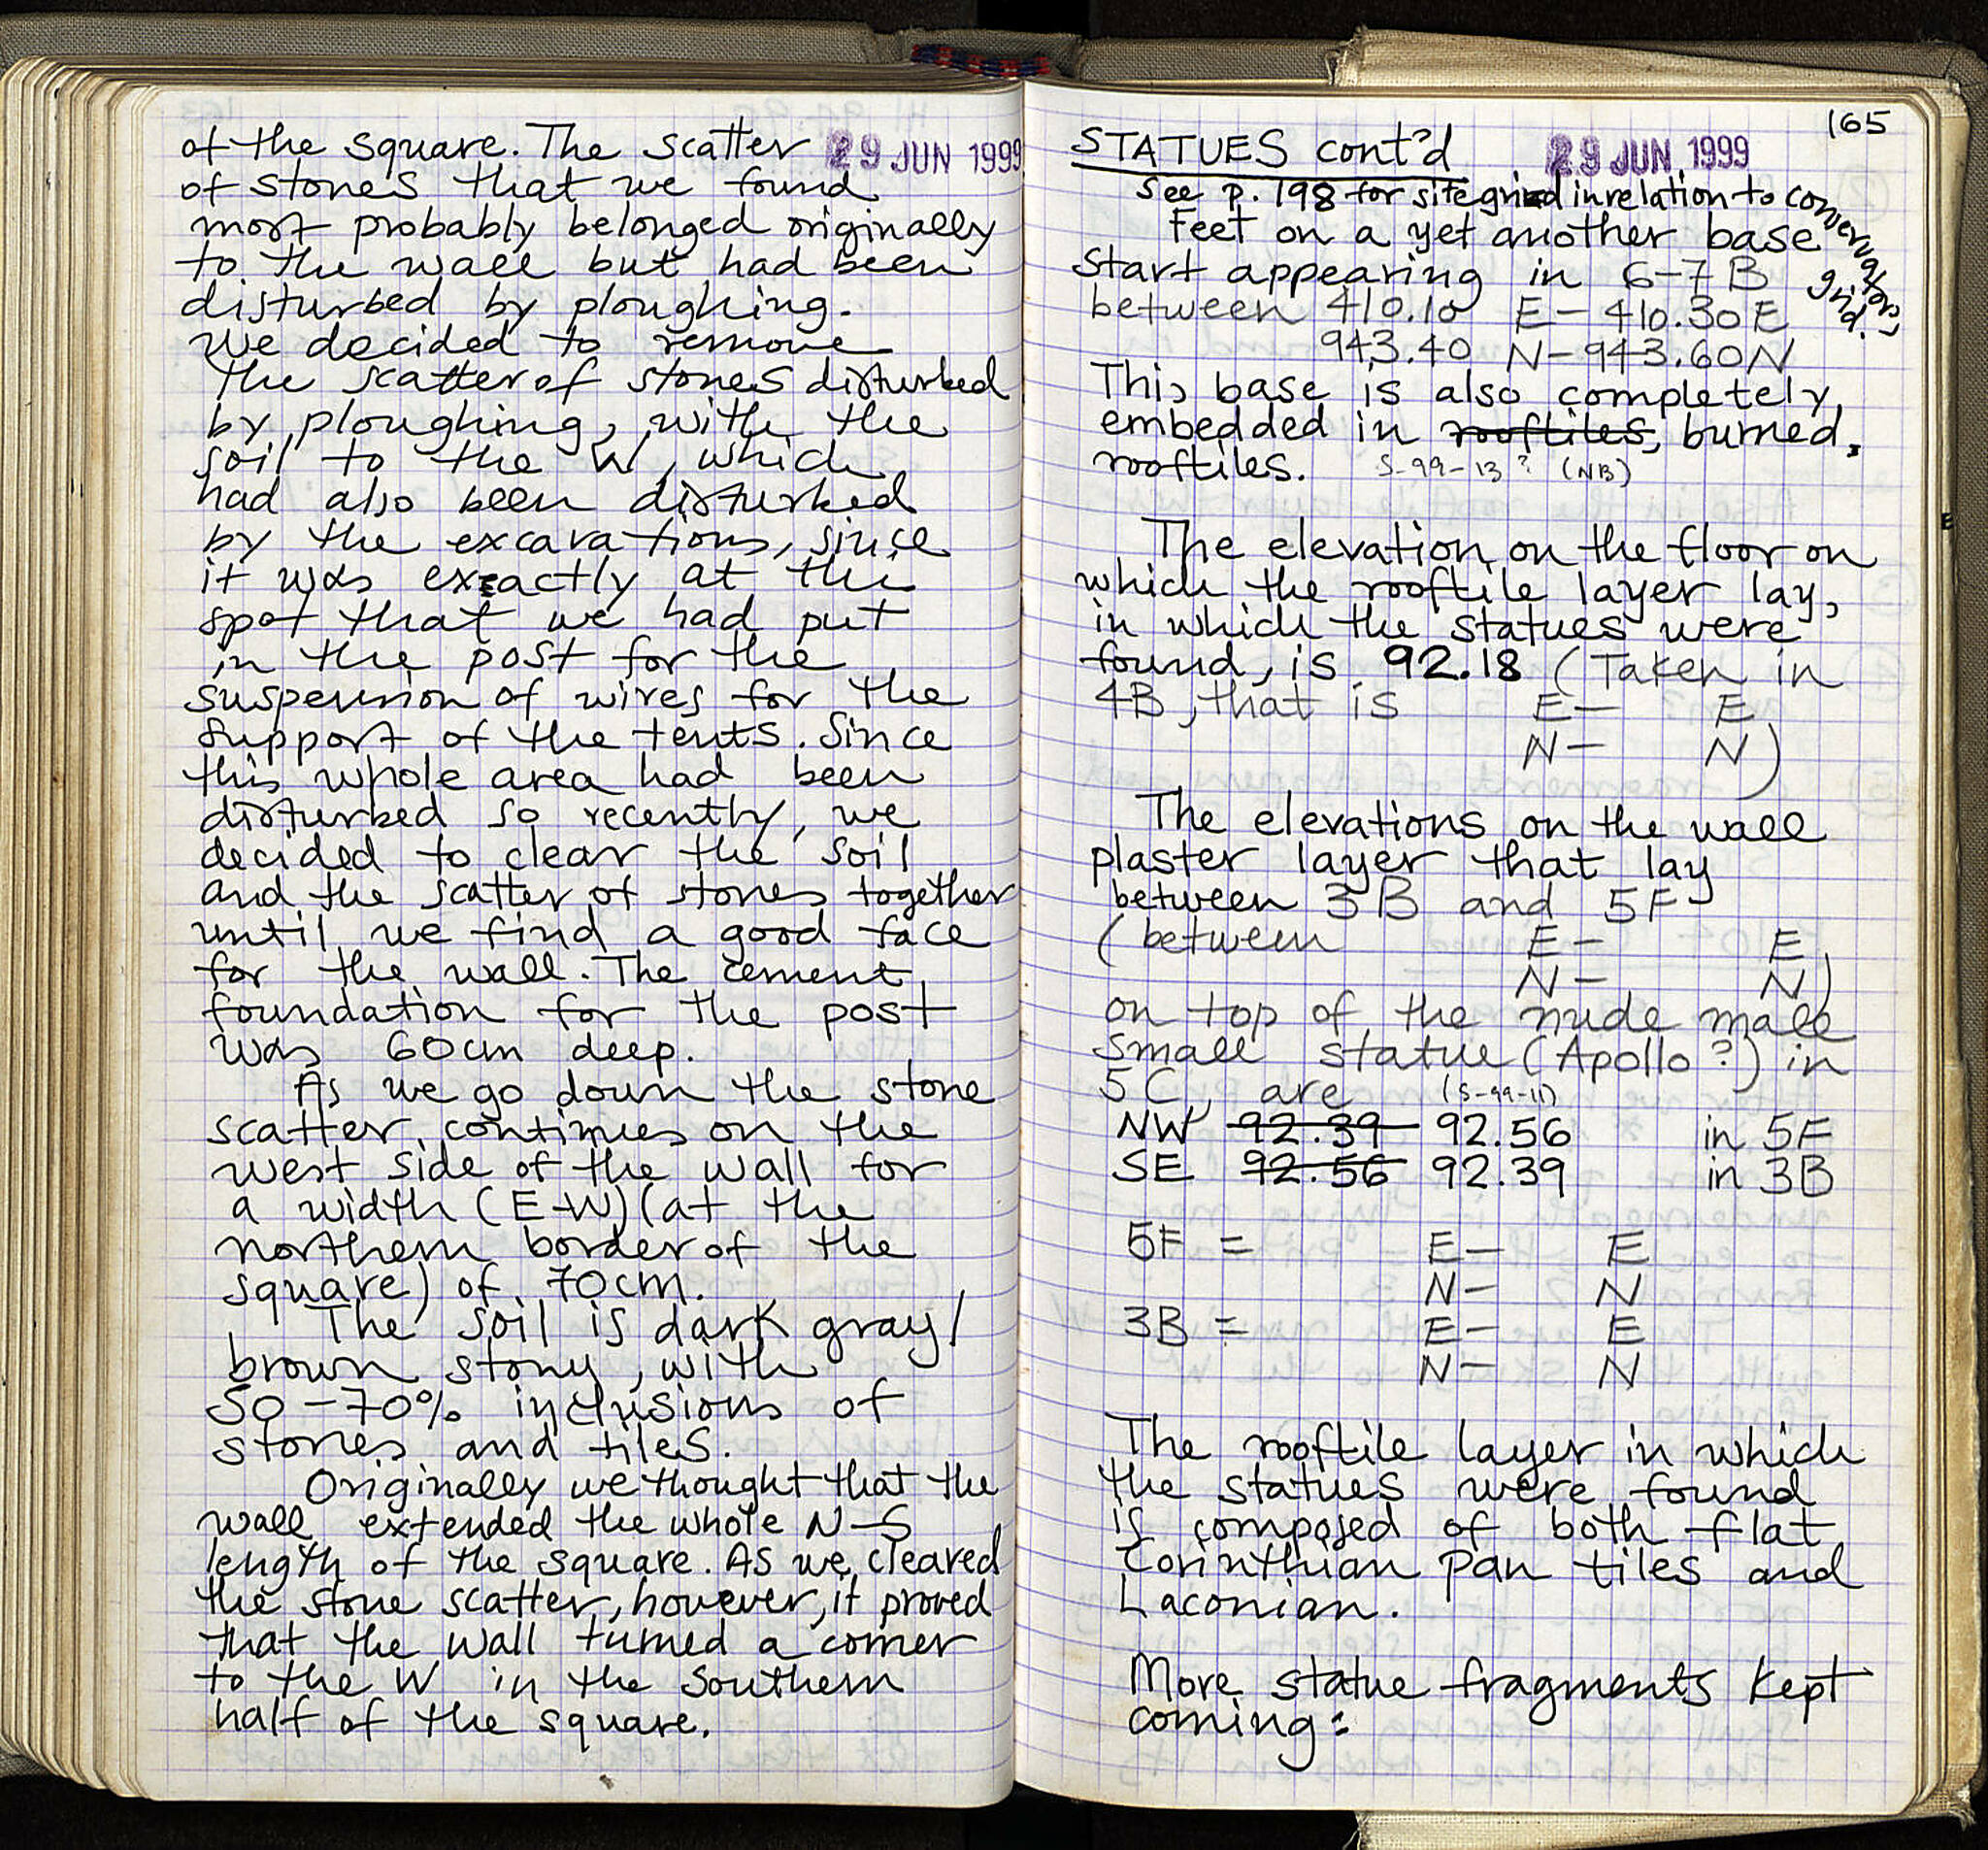 of the square. The scatter 29 JUN 1999
of stones that we found
most probably belonged originally
to the wall but had been
disturbed by ploughing.
We decided to remove
the scatter of stones disturbed
by ploughing, with the
soil to the W, which
had also been disturbed
by the excavations, since
it was exactly at the
spot that we had put
in the post for the
suspension of wires for the
support of the tents. Since
this whole area had been
disturbed so recently, we
decided to clear the soil
and the scatter of stones together
until we find a good face
for the wall. The cement
foundation for the post
was 60cm deep.
As we go down the stone
scatter continues on the
west side of the wall for
a width (E-W) (at the
northern border of the
square) of 70cm.
The soil is dark gray/
brown stony, with
50-70% inclusions of
stones and tiles.
Originally we thought that the
wall extended the whole N-S
length of the square. As we cleared
the stone scatter, however, it proved
that the wall turned a corner
to the W in the southern
half of the square.
165
STATUES cont'd 29 JUN 1999
See p. 198 for site grid in relation to conservators' grid.
Feet on a yet another base
start appearing in 6-7B
between 410.10 E- 410.30E
943.40 N-943.60N
This base is also completely
embedded in rooftiles, burned,
rooftiles. S-99-13? (NB)
The elevation on the floor on
which the rooftile layer lay,
in which the statues were
found, is 92.18 (Taken in
4B, that is E- E
N- N)
The elevations on the wall
plaster layer that lay
between 3B and 5F
(between E- E
N- N)
on top of the nude male
small statue (Apollo?) in
5C, are (S-99-11)
NW 92.39 92.56 in 5F
SE 92.56 92.39 in 3B
5F = E- E
N- N
3B = E- E
N- N
The rooftile layer in which
the statues were found
is composed of both flat
Corinthian pan tiles and
Laconian.
More statue fragments kept
coming: